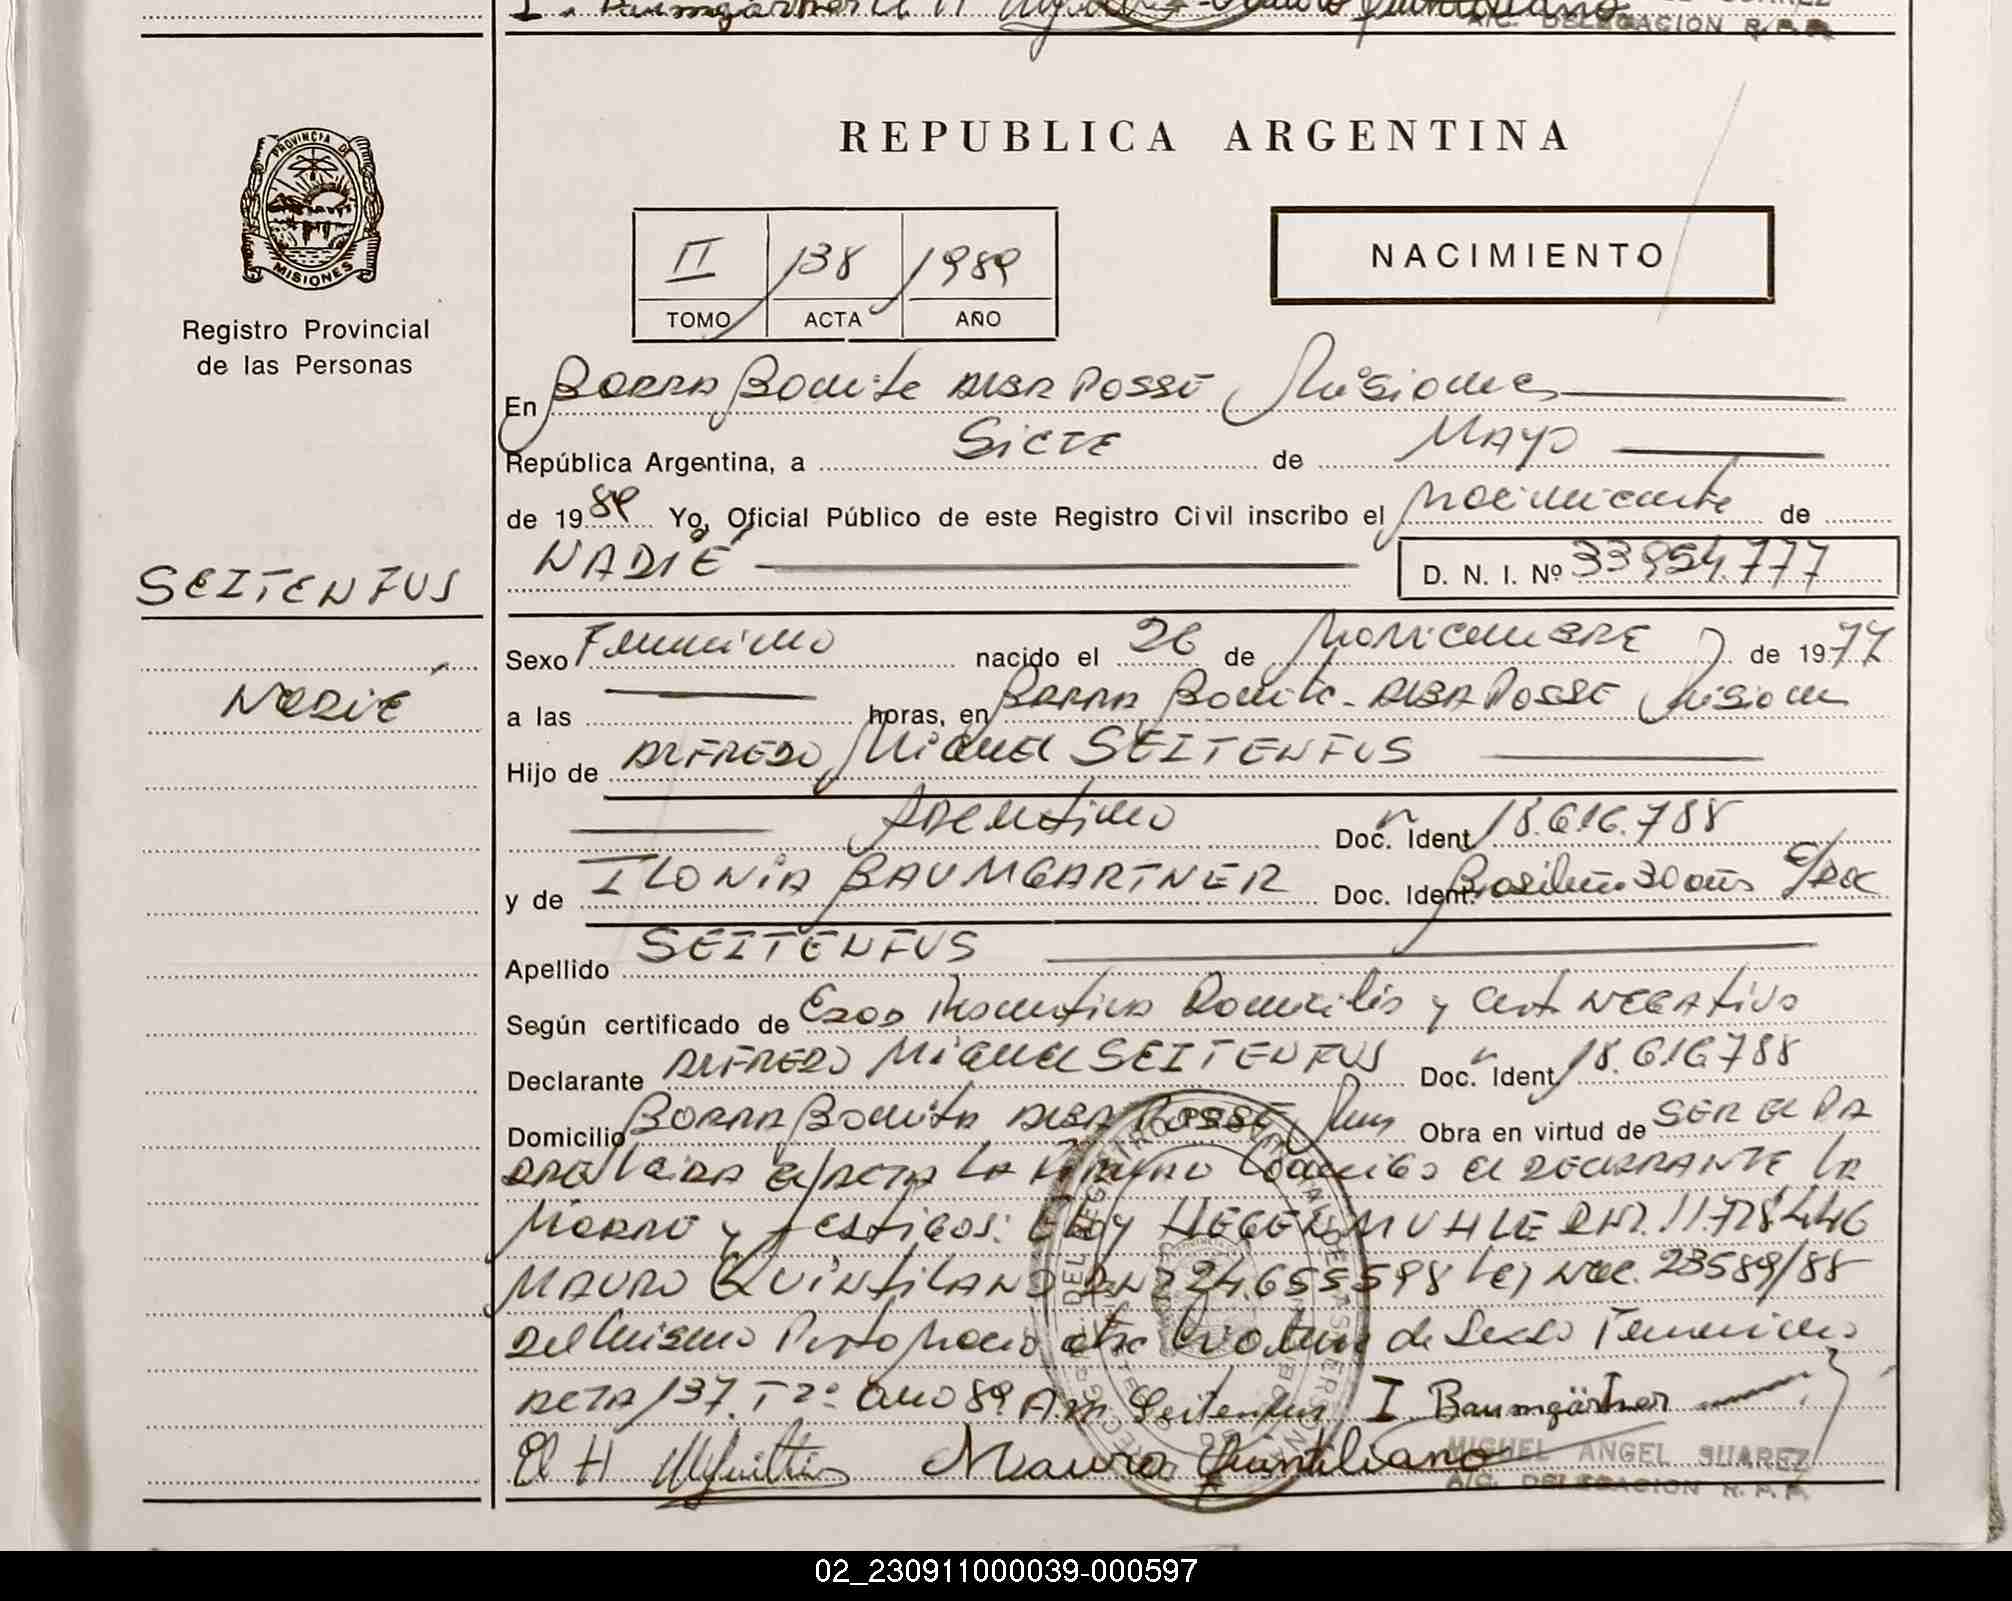 I. Baumgärtner
A/C. DELEGACION R.P.P.
PROVINCIA DE
MISIONES
Registro Provincial
de las Personas
REPUBLICA ARGENTINA
II 138 1989
TOMO ACTA AÑO
NACIMIENTO
En Barra Bonita Alba Posse Misiones
República Argentina, a Siete de Mayo
de 1989 Yo, Oficial Público de este Registro Civil inscribo el nacimiento de
NADIE
D. N. I. Nº 33954.777
SEITENFUS
Nadie
Sexo Femenino nacido el 26 de Noviembre de 1977
a las horas, en Barra Bonita - Alba Posse Misiones
Hijo de Alfredo Miguel SEITENFUS
Argentino Doc. Ident. 18.616.788
y de ILONIA BAUMGARTNER Doc. Ident. Brasileña 30 años
Apellido SEITENFUS
Según certificado de Domicilio y Cert NEGATIVO
Declarante Alfredo Miguel SEITENFUS Doc. Ident. 18.616788
Domicilio Barra Bonita Alba Posse Obra en virtud de SER EL PA
DRE Leida el ACTA LA FIRMAN Conmigo el DECLARANTE LA
MADRE y Testigos: Eloy HEGENMUHLE DNI. 11.728446
MAURO QUINTILANO DNI 24.655598 Ley Nac. 23589/88
Del mismo Parto nacio otra de Sexo Femenino
ACTA 137. T 2º año 89 A.M Seitenfus I. Baumgärtner
El H Mauro Quintiliano
MIGUEL ANGEL SUAREZ
A/C. DELEGACION R.P.P.
02_230911000039-000597